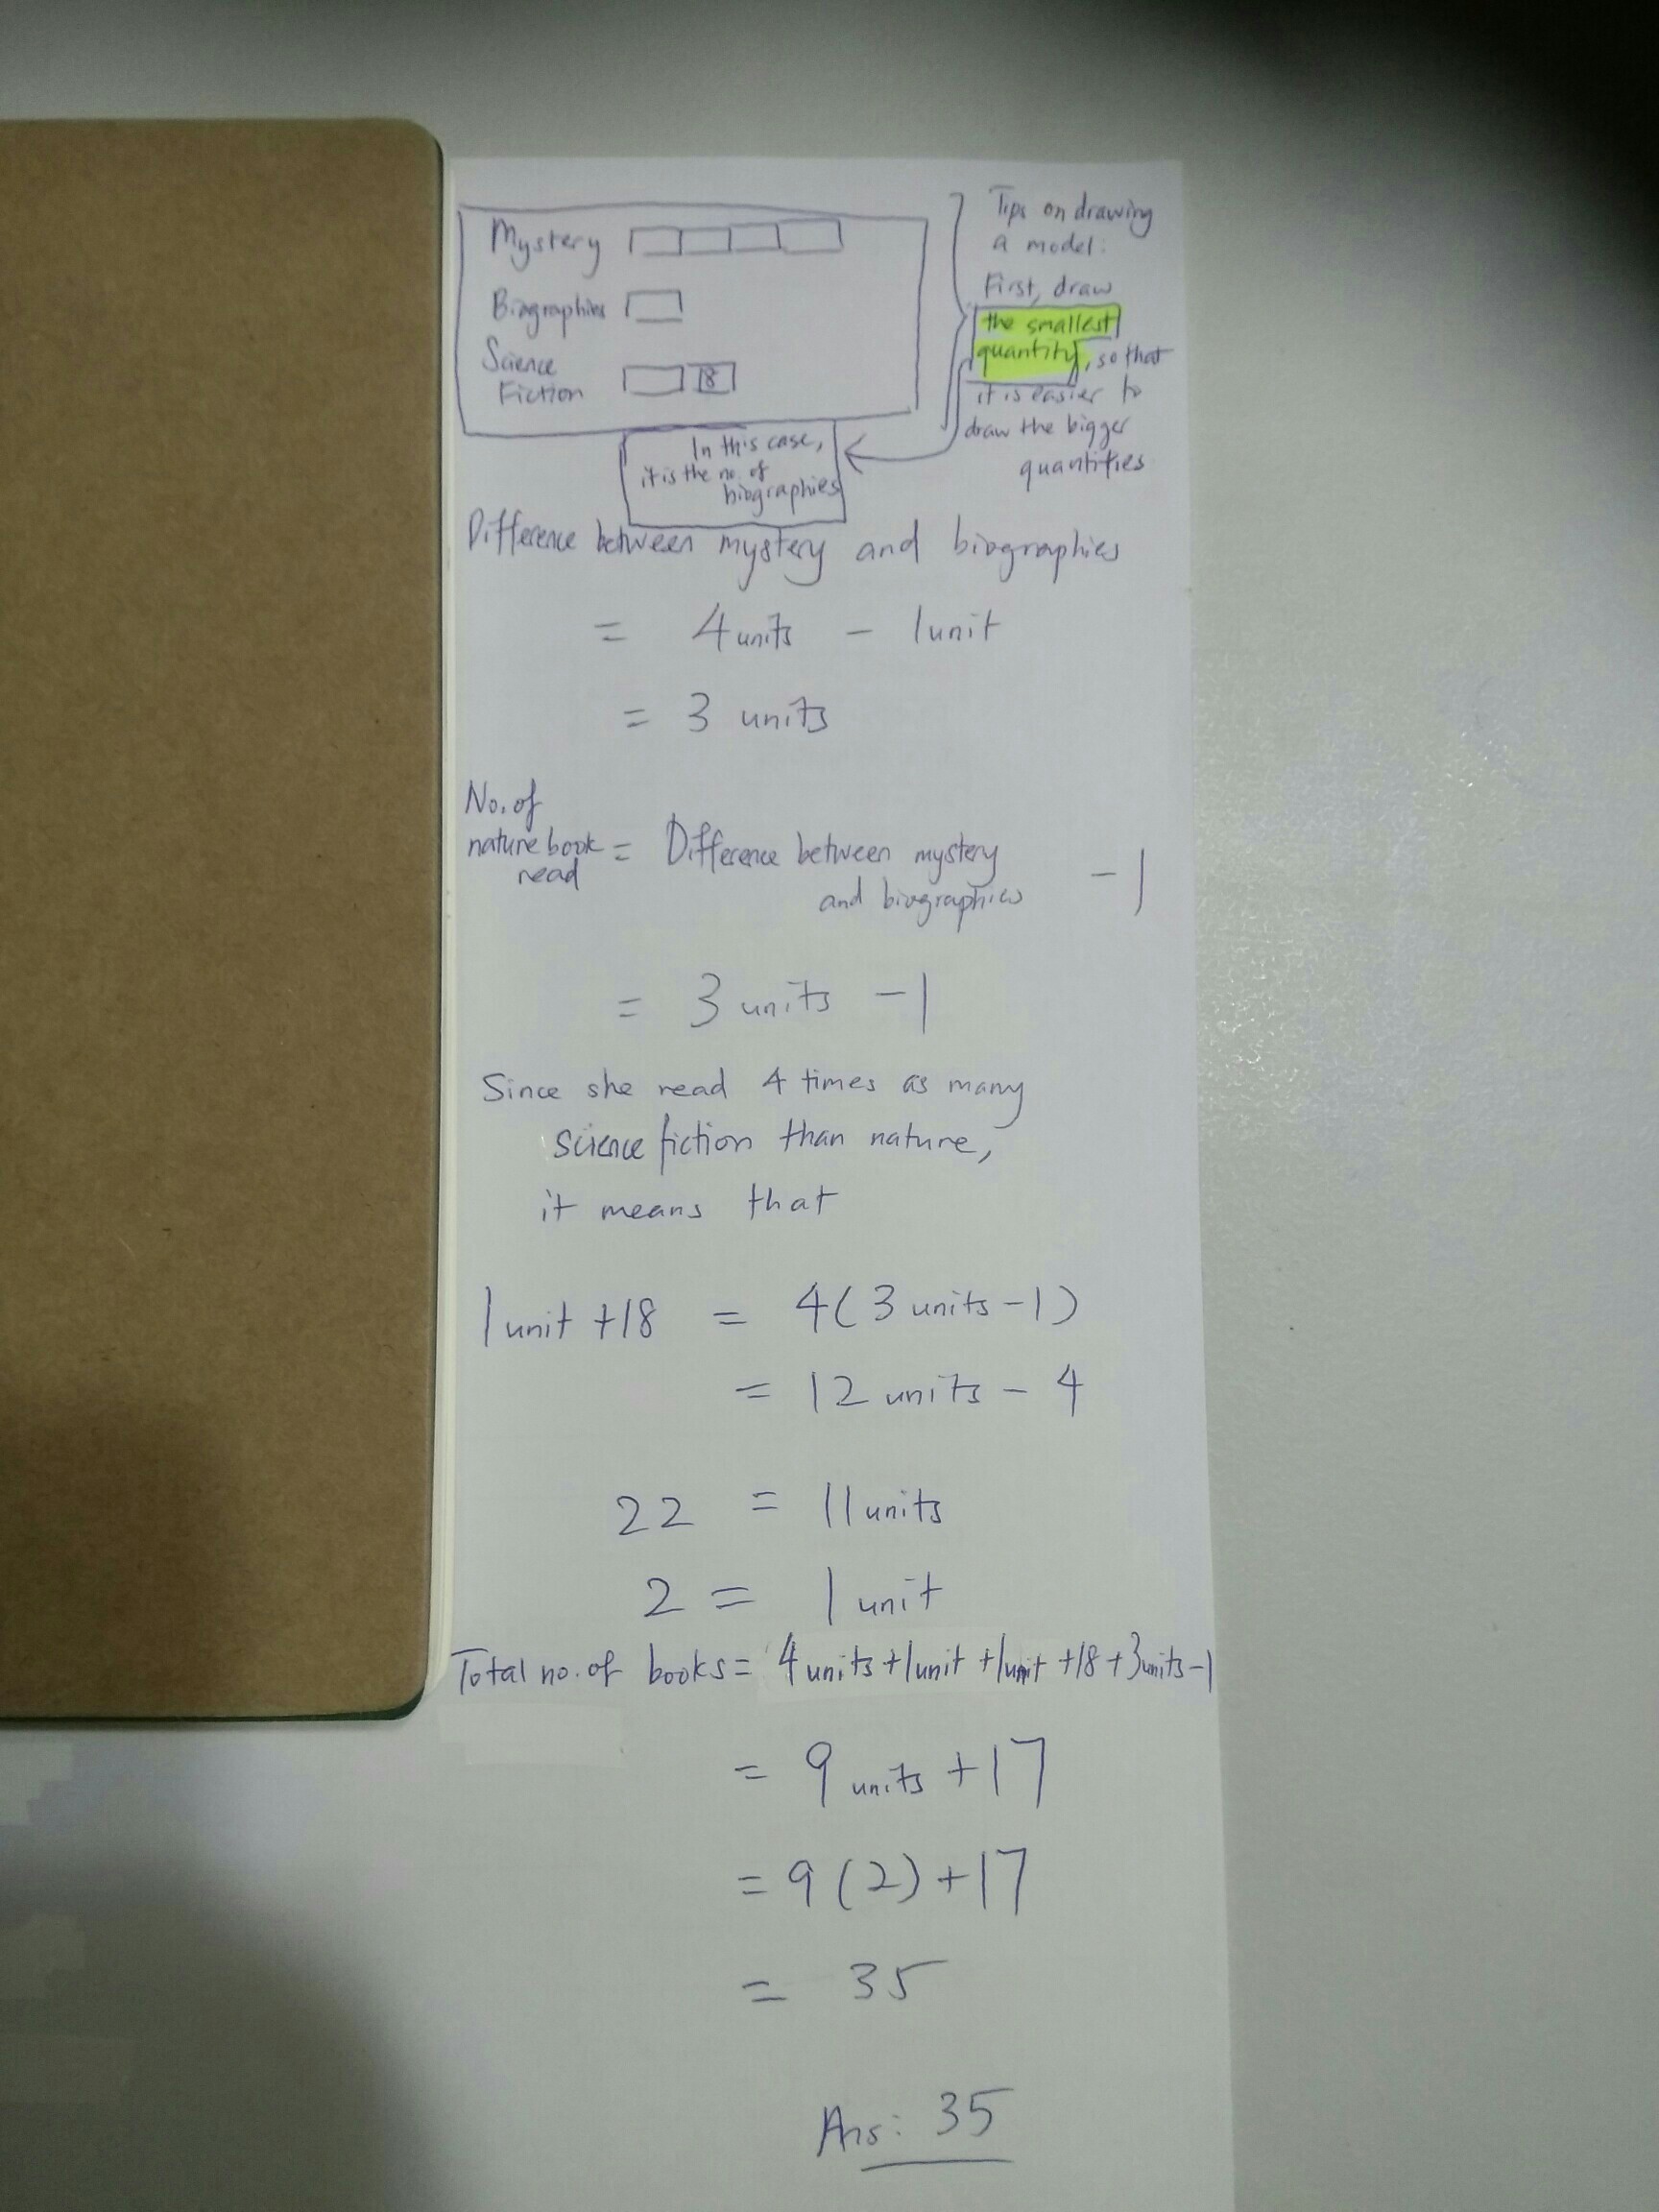 Mystery
Biographies
Science
Fiction 18
Tips on drawing
a model:
First, draw
the smallest
quantity, so that
it is easier to
draw the bigger
quantities
In this case,
it is the no. of
biographies
Difference between mystery and biographies
= 4 units - 1 unit
= 3 units
No. of
nature book
read
= Difference between mystery
and biographies - 1
= 3 units - 1
Since she read 4 times as many
science fiction than nature,
it means that
1 unit + 18 = 4(3 units - 1)
= 12 units - 4
22 = 11 units
2 = 1 unit
Total no. of books = 4 units + 1 unit + 1 unit + 18 + 3 units - 1
= 9 units + 17
= 9(2) + 17
= 35
Ans: 35